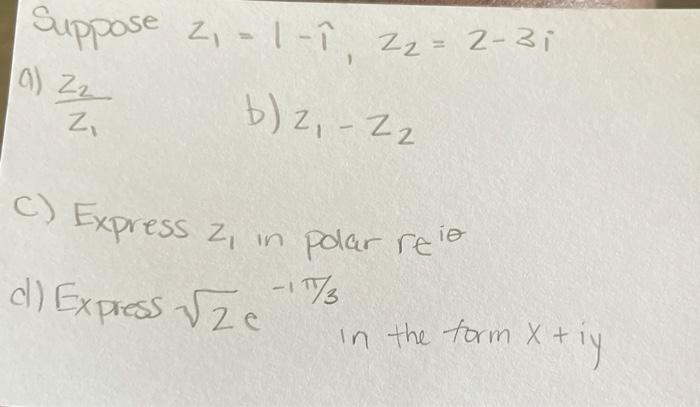 Suppose z₁ = 1 - î, z₂ = 2-3i
a) z₂/z₁ b) z₁ - z₂
c) Express z₁ in polar re^iθ
d) Express √2 e^-iπ/3 in the form x + iy